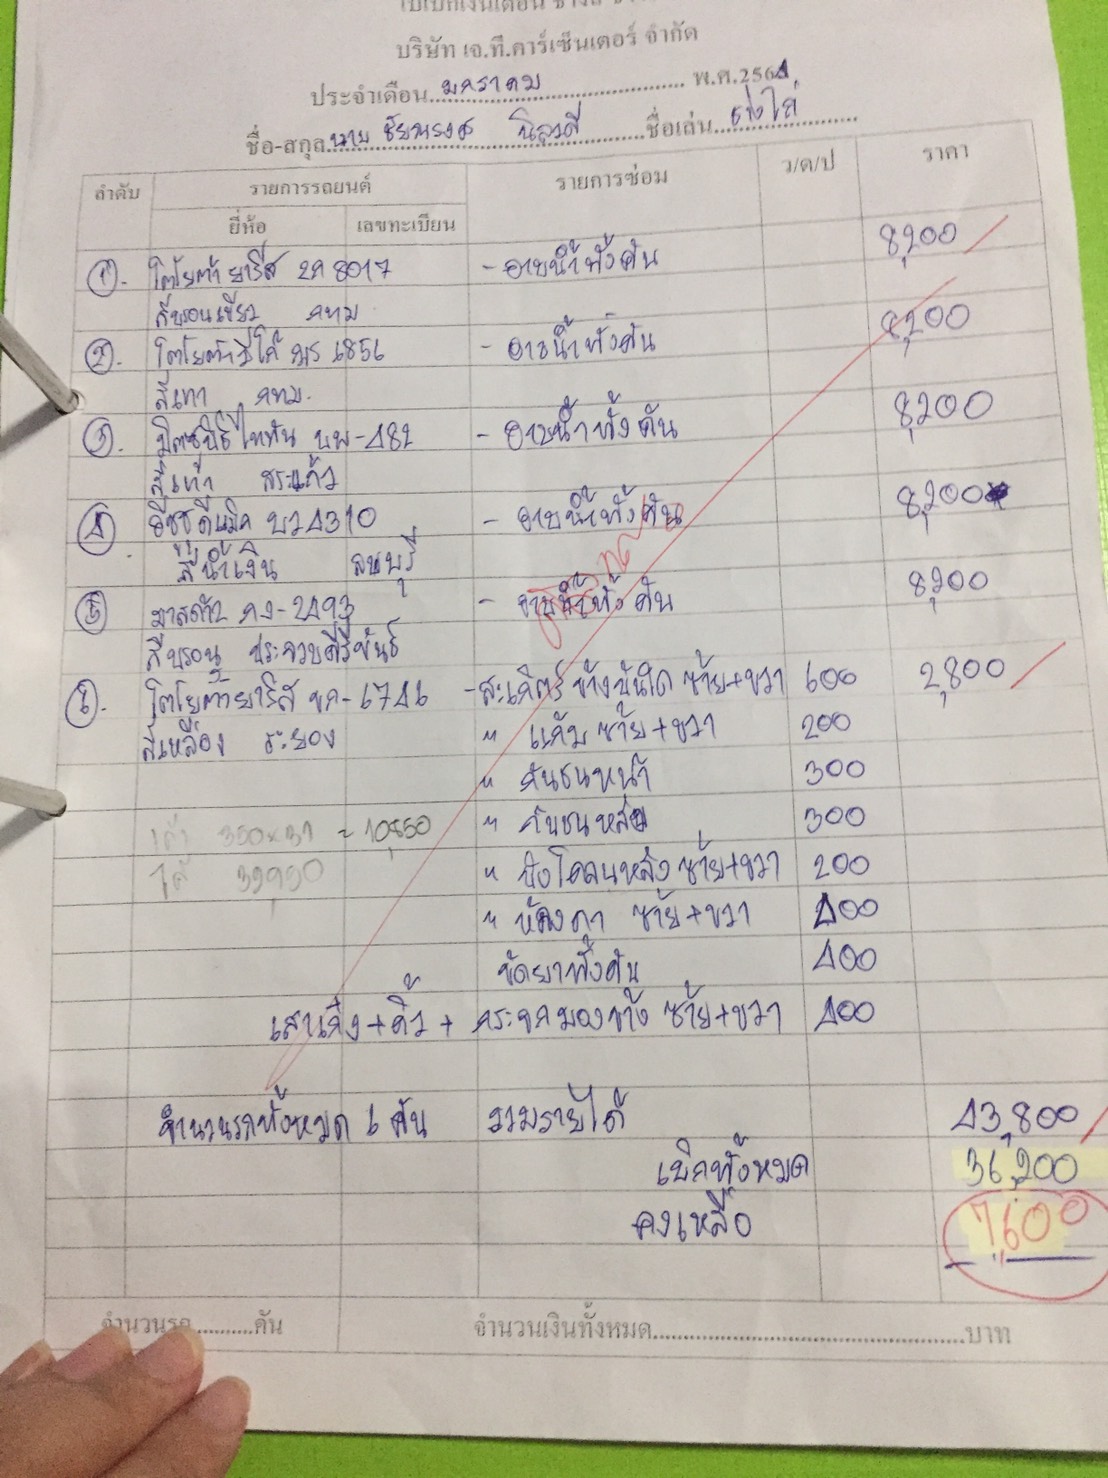 บริษัท เจ.ที.คาร์เซ็นเตอร์ จำกัด
ประจำเดือน มกราคม พ.ศ.2564
ชื่อ-สกุล นาย ชื่อเล่น
ลำดับ รายการรถยนต์ รายการซ่อม ว/ด/ป ราคา
ยี่ห้อ เลขทะเบียน
①. โตโยต้า ยาริส 8017 - อาบน้ำทั้งคัน 8,200
สีบรอนเขียว กทม
②. โตโยต้าวีโก้ 6856 - อาบน้ำทั้งคัน 8,200
สีเทา กทม.
③. มิตซูบิชิไททัน บพ-482 - อาบน้ำทั้งคัน 8,200
สีเทา สระแก้ว
④. อีซูซุดีแม็ค บว 4310 - อาบน้ำทั้งคัน 8,200
สีน้ำเงิน ลพบุรี
⑤ มาสด้า2 กง-2493 - อาบน้ำทั้งคัน 8,200
สีบรอน ประจวบคีรีขันธ์
6. โตโยต้ายาริส ขก-6746 - สะเกิตร์ข้างบันใด ซ้าย+ขวา 600 2,800
สีเหลือง ระยอง " แก้ม ซ้าย+ขวา 200
" กันชนหน้า 300
350x31 = 10,850 " กันชนหลัง 300
ได้ " บังโคลนหลัง ซ้าย+ขวา 200
" ซ้าย+ขวา 400
ขัดยาทั้งคัน 400
เสาเก๋ง+คิ้ว + กระจกมองข้าง ซ้าย+ขวา 400
จำนวนรถทั้งหมด 6 คัน รวมรายได้ 43,800
เบิกทั้งหมด 36,200
คงเหลือ 7,600
จำนวนรถ..........คัน จำนวนเงินทั้งหมด..........บาท